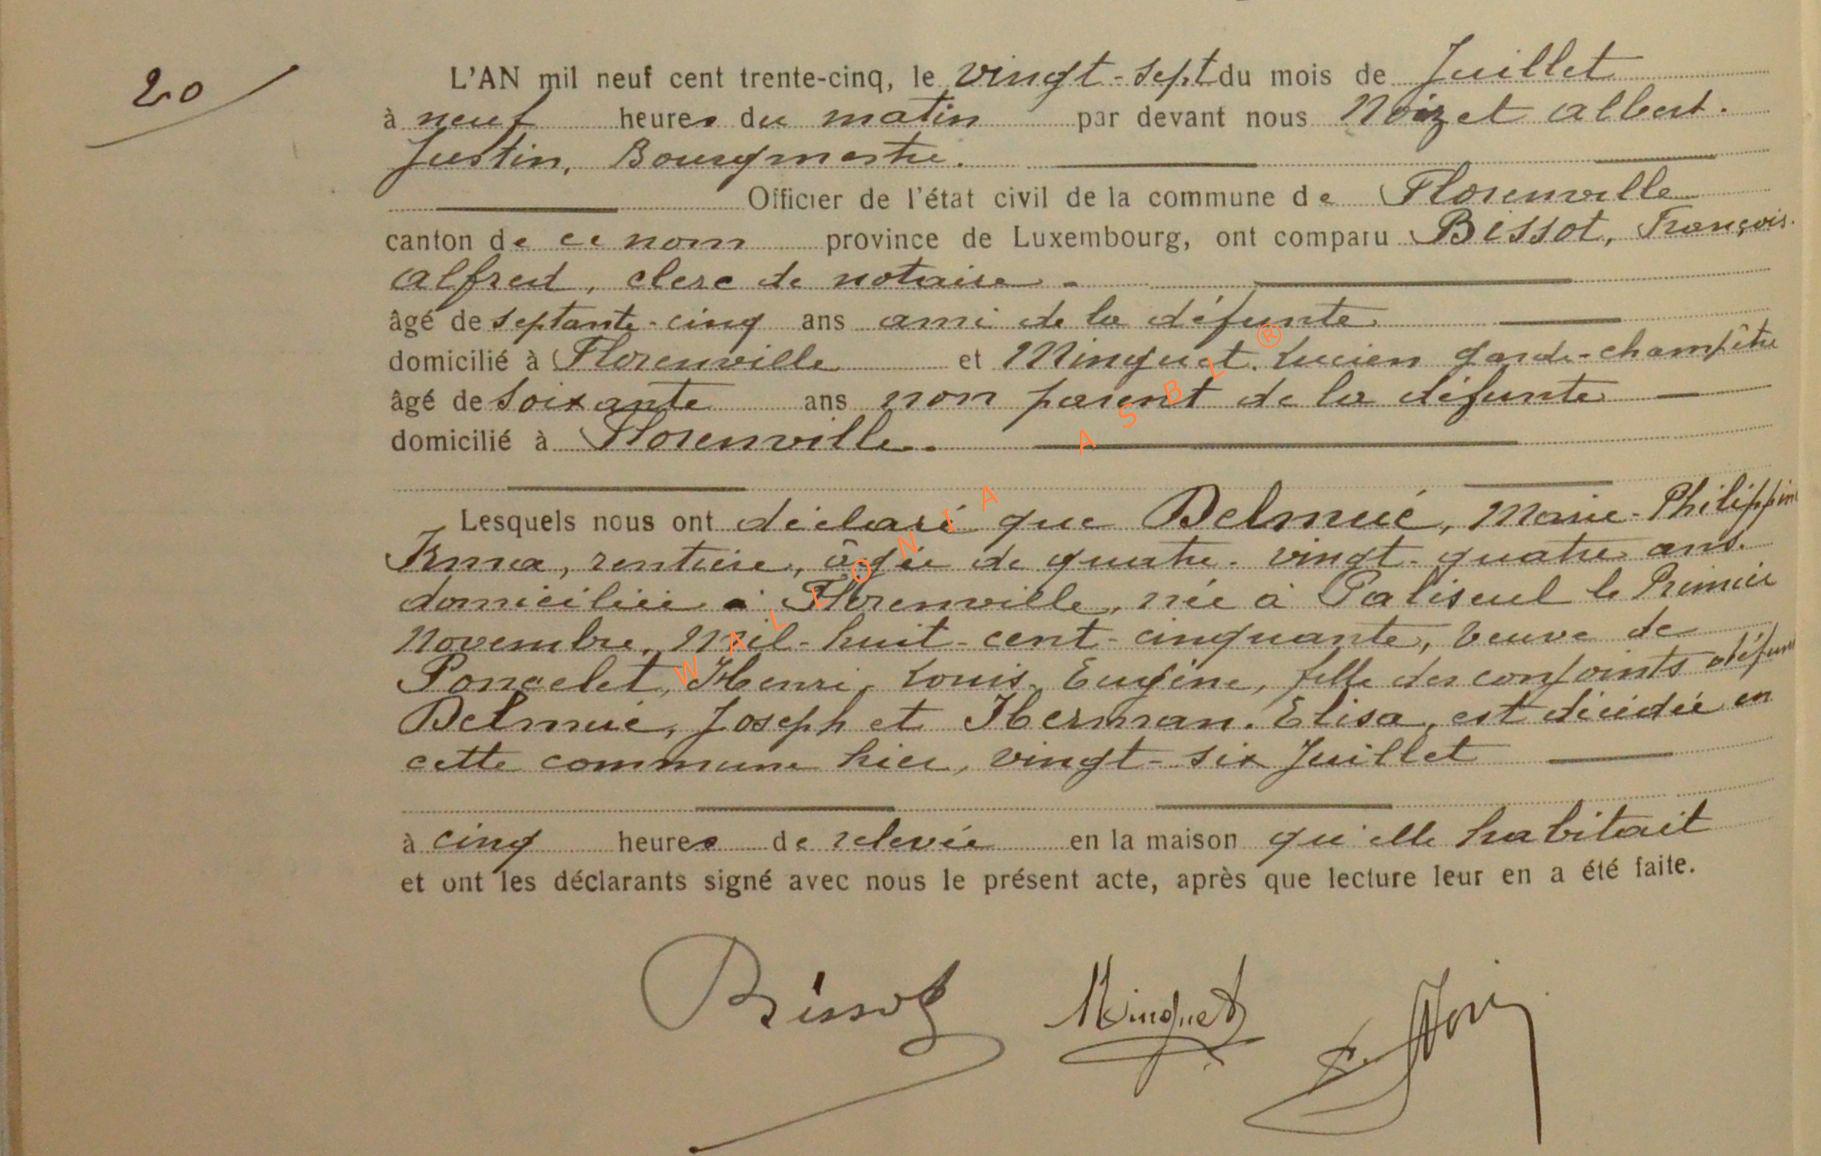 20
L'AN mil neuf cent trente-cinq, le vingt-sept du mois de Juillet
à neuf heures du matin par devant nous Noizet Albert.
Justin, Bourgmestre.
Officier de l'état civil de la commune de Florenville
canton de ce nom province de Luxembourg, ont comparu Bissot, François.
Alfred, clerc de notaire.
âgé de septante-cinq ans ami de la défunte
domicilié à Florenville et Minguet. Lucien garde-champêtre
âgé de soixante ans non parent de la défunte
domicilié à Florenville.
Lesquels nous ont déclaré que Delmué, Marie-Philippine
Irma, rentière, âgée de quatre-vingt-quatre ans.
domiciliée à Florenville, née à Paliseul le Premier
Novembre, mil-huit-cent-cinquante, veuve de
Poncelet, Henri, Louis, Eugène, fille des conjoints défunts
Delmué, Joseph et Herman. Elisa, est décédée en
cette commune hier, vingt-six Juillet
à cinq heures de relevée en la maison qu'elle habitait
et ont les déclarants signé avec nous le présent acte, après que lecture leur en a été faite.
Bissot Minguet
WALLONIA ASBL ®